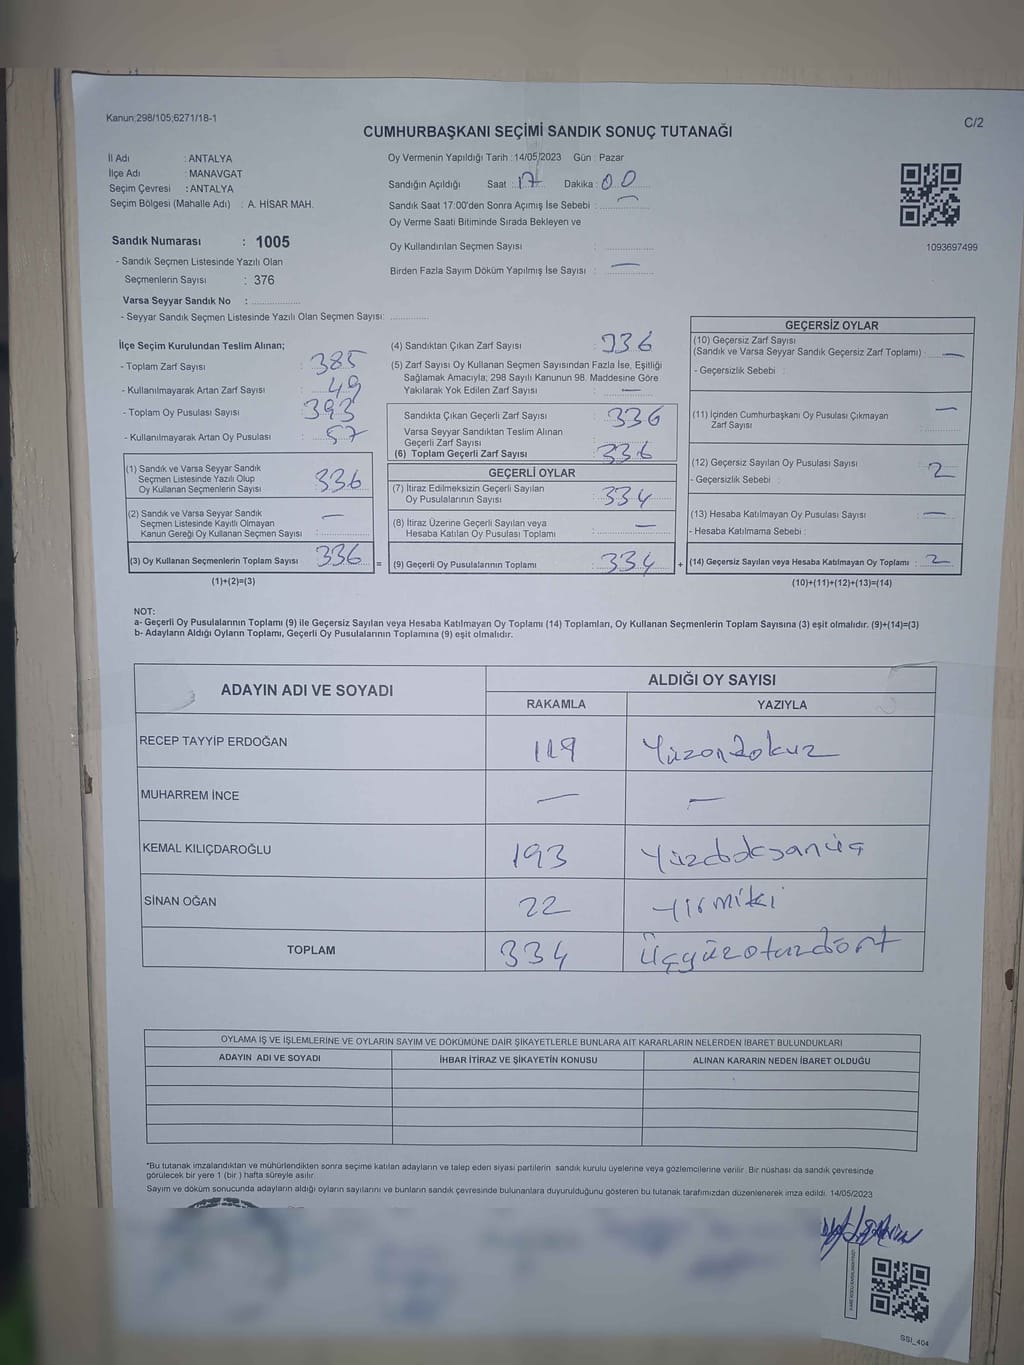 Kanun;298/105;6271/18-1
C/2
CUMHURBAŞKANI SEÇİMİ SANDIK SONUÇ TUTANAĞI
İl Adı : ANTALYA
İlçe Adı : MANAVGAT
Seçim Çevresi : ANTALYA
Seçim Bölgesi (Mahalle Adı) : A. HİSAR MAH.
Oy Vermenin Yapıldığı Tarih :14/05/2023 Gün : Pazar
Sandığın Açıldığı Saat : 17 Dakika : 00
Sandık Saat 17:00'den Sonra Açımış İse Sebebi : —
Oy Verme Saati Bitiminde Sırada Bekleyen ve
Oy Kullandırılan Seçmen Sayısı :
Birden Fazla Sayım Döküm Yapılmış İse Sayısı : —
1093697499
Sandık Numarası : 1005
- Sandık Seçmen Listesinde Yazılı Olan
Seçmenlerin Sayısı : 376
Varsa Seyyar Sandık No :
- Seyyar Sandık Seçmen Listesinde Yazılı Olan Seçmen Sayısı:
İlçe Seçim Kurulundan Teslim Alınan;
- Toplam Zarf Sayısı : 385
- Kullanılmayarak Artan Zarf Sayısı : 49
- Toplam Oy Pusulası Sayısı : 393
- Kullanılmayarak Artan Oy Pusulası : 57
(1) Sandık ve Varsa Seyyar Sandık
Seçmen Listesinde Yazılı Olup
Oy Kullanan Seçmenlerin Sayısı : 336
(2) Sandık ve Varsa Seyyar Sandık
Seçmen Listesinde Kayıtlı Olmayan
Kanun Gereği Oy Kullanan Seçmen Sayısı : —
(3) Oy Kullanan Seçmenlerin Toplam Sayısı : 336 =
(1)+(2)=(3)
(4) Sandıktan Çıkan Zarf Sayısı : 336
(5) Zarf Sayısı Oy Kullanan Seçmen Sayısından Fazla İse, Eşitliği
Sağlamak Amacıyla; 298 Sayılı Kanunun 98. Maddesine Göre
Yakılarak Yok Edilen Zarf Sayısı : —
Sandıkta Çıkan Geçerli Zarf Sayısı : 336
Varsa Seyyar Sandıktan Teslim Alınan
Geçerli Zarf Sayısı :
(6) Toplam Geçerli Zarf Sayısı : 336
GEÇERLİ OYLAR
(7) İtiraz Edilmeksizin Geçerli Sayılan
Oy Pusulalarının Sayısı : 334
(8) İtiraz Üzerine Geçerli Sayılan veya
Hesaba Katılan Oy Pusulası Toplamı : —
(9) Geçerli Oy Pusulalarının Toplamı : 334 +
GEÇERSİZ OYLAR
(10) Geçersiz Zarf Sayısı
(Sandık ve Varsa Seyyar Sandık Geçersiz Zarf Toplamı) : —
- Geçersizlik Sebebi :
(11) İçinden Cumhurbaşkanı Oy Pusulası Çıkmayan
Zarf Sayısı : —
(12) Geçersiz Sayılan Oy Pusulası Sayısı : 2
- Geçersizlik Sebebi :
(13) Hesaba Katılmayan Oy Pusulası Sayısı : —
- Hesaba Katılmama Sebebi :
(14) Geçersiz Sayılan veya Hesaba Katılmayan Oy Toplamı : 2
(10)+(11)+(12)+(13)=(14)
NOT:
a- Geçerli Oy Pusulalarının Toplamı (9) ile Geçersiz Sayılan veya Hesaba Katılmayan Oy Toplamı (14) Toplamları, Oy Kullanan Seçmenlerin Toplam Sayısına (3) eşit olmalıdır. (9)+(14)=(3)
b- Adayların Aldığı Oyların Toplamı, Geçerli Oy Pusulalarının Toplamına (9) eşit olmalıdır.
ADAYIN ADI VE SOYADI
ALDIĞI OY SAYISI
RAKAMLA YAZIYLA
RECEP TAYYİP ERDOĞAN 119 Yüzondokuz
MUHARREM İNCE — —
KEMAL KILIÇDAROĞLU 193 Yüzdoksanüç
SİNAN OĞAN 22 Yirmiki
TOPLAM 334 Üçyüzotuzdört
OYLAMA İŞ VE İŞLEMLERİNE VE OYLARIN SAYIM VE DÖKÜMÜNE DAİR ŞİKAYETLERLE BUNLARA AİT KARARLARIN NELERDEN İBARET BULUNDUKLARI
ADAYIN ADI VE SOYADI İHBAR İTİRAZ VE ŞİKAYETİN KONUSU ALINAN KARARIN NEDEN İBARET OLDUĞU
*Bu tutanak imzalandıktan ve mühürlendikten sonra seçime katılan adayların ve talep eden siyasi partilerin sandık kurulu üyelerine veya gözlemcilerine verilir. Bir nüshası da sandık çevresinde
görülecek bir yere 1 (bir ) hafta süreyle asılır.
Sayım ve döküm sonucunda adayların aldığı oyların sayılarını ve bunların sandık çevresinde bulunanlara duyurulduğunu gösteren bu tutanak tarafımızdan düzenlenerek imza edildi. 14/05/2023
SSI_404